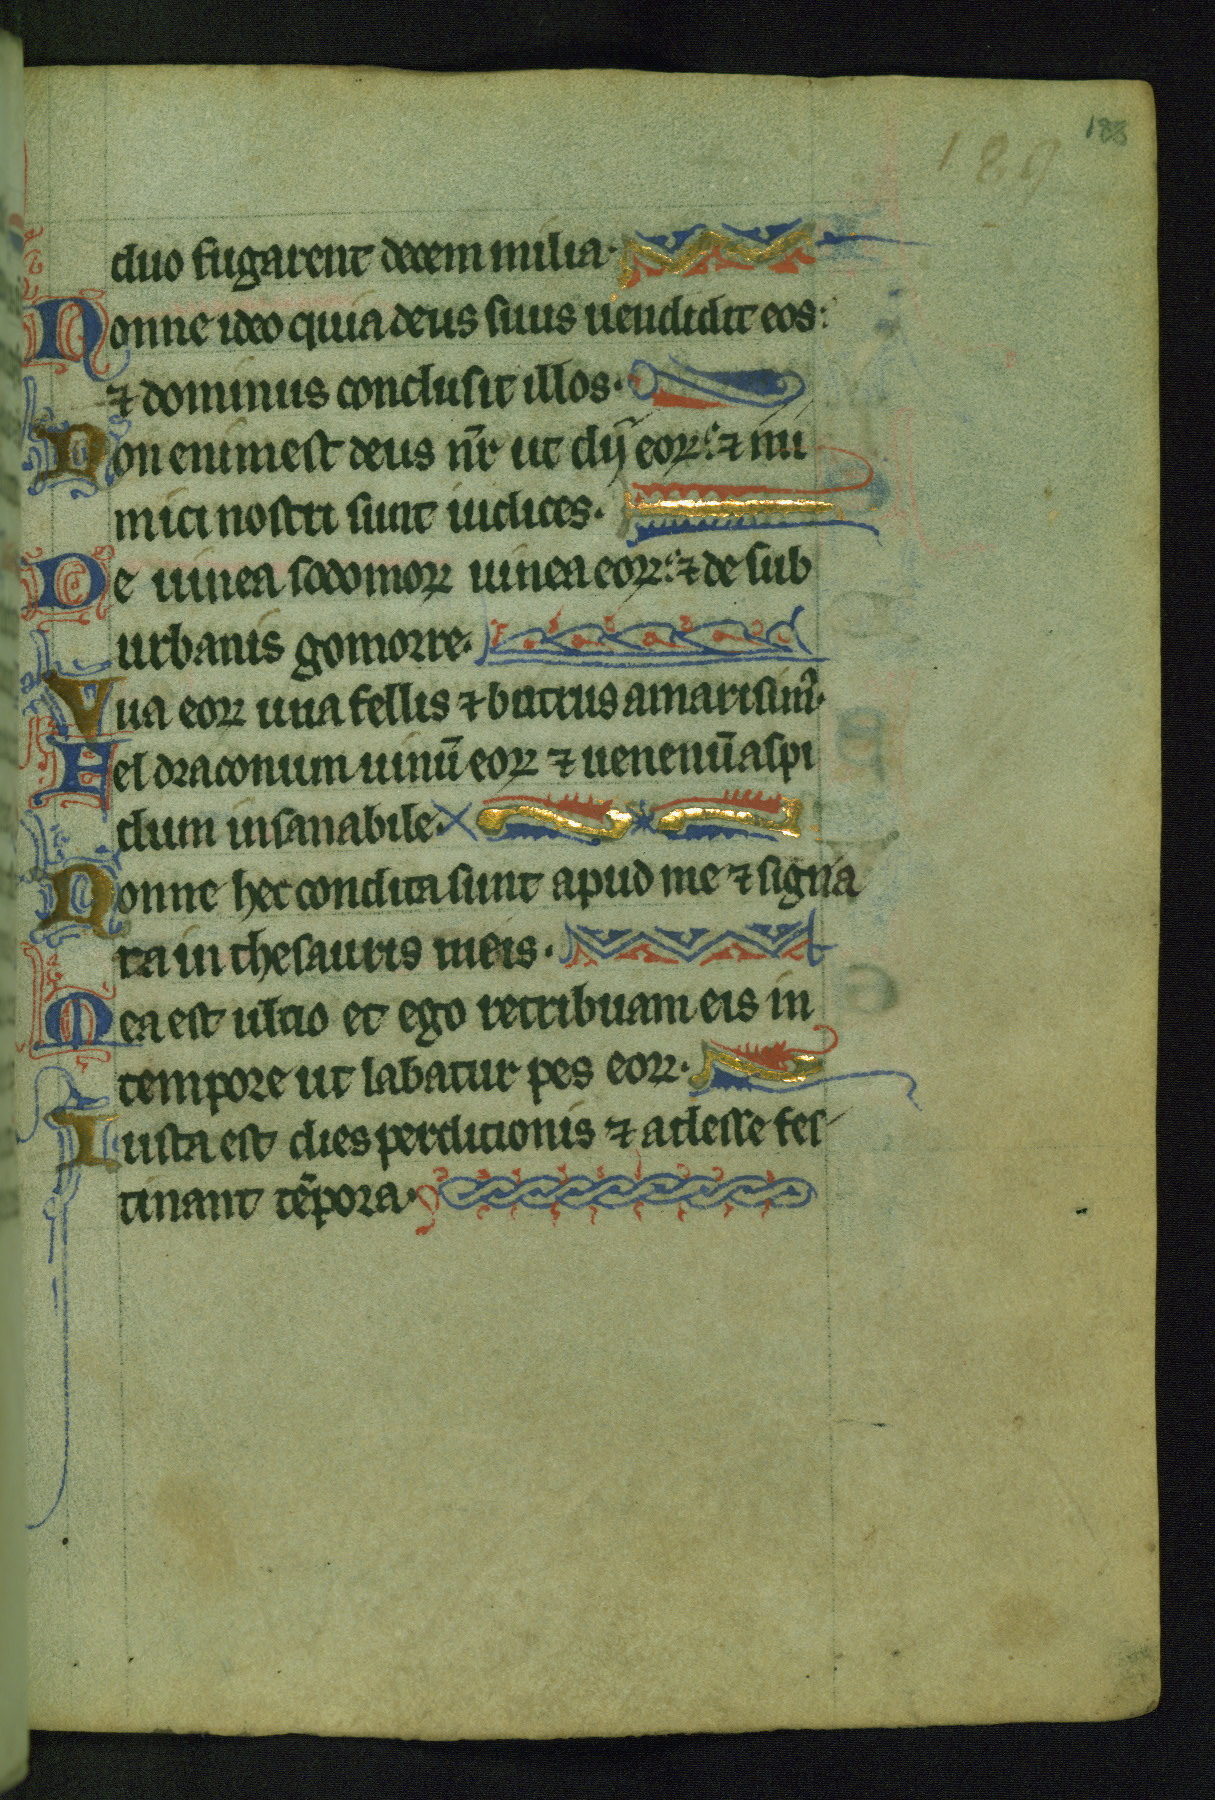 188
189
duo fugarent decem milia·
Nonne ideo quia deus suus uendidit eos:
⁊ dominus conclusit illos·
Non enim est deus nr̄ ut dij eoꝝ: ⁊ ini
mici nostri sunt iudices·
De uinea sodomoꝝ uinea eoꝝ: ⁊ de sub
urbanis gomorre·
Vua eoꝝ uua fellis ⁊ butrus amarisim̄·
Fel draconum uinū eoꝝ ⁊ uenenū aspi
dum insanabile·
Nonne hec condita sunt apud me ⁊ signa
ta in thesauris meis·
Mea est ultio et ego retribuam eis in
tempore ut labatur pes eoꝝ·
Iusta est dies perditionis ⁊ adesse fes
tinant tēpora·